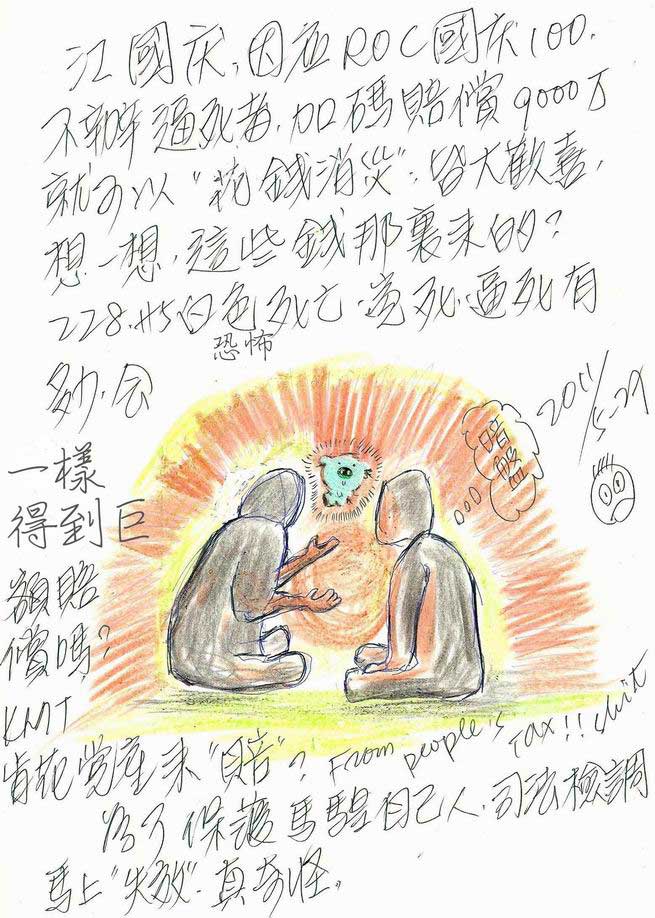 江國庆,因应ROC國庆100,
不辦逼死者,加碼賠償9000万
就可以"花錢消災",皆大歡喜,
想一想,這些錢那裏来的?
228.其5白色死亡.竟死.逼死有
恐怖
多少.会
2011/5-29
暗盤
一樣
得到巨
額賠
償嗎?
KMT
肯花党產来"賠"? From people's Tax!! shit
為了保護馬騜自己人,司法檢調
馬上"失效".真奇怪。